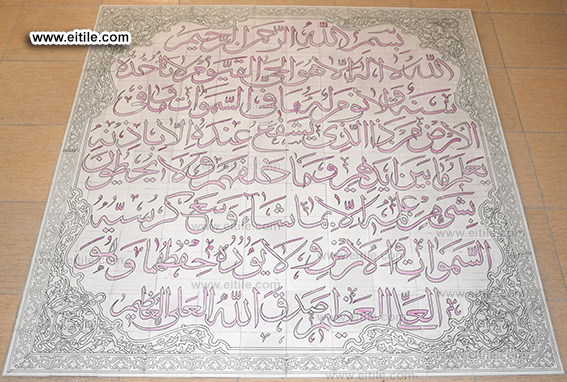 www.eitile.com
بسم الله الرحمن الرحيم
الله لا اله الا هو الحي القيوم لا تأخذه
سنة ولا نوم له ما في السموات وما في
الارض من ذا الذي يشفع عنده الا باذنه
يعلم ما بين ايديهم وما خلفهم ولا يحيطون
بشيء من علمه الا بما شاء وسع كرسيه
www.eitile.com
السموات والارض ولا يؤده حفظهما وهو
www.eitile.com
العلي العظيم صدق الله العلي العظيم
www.eitile.com